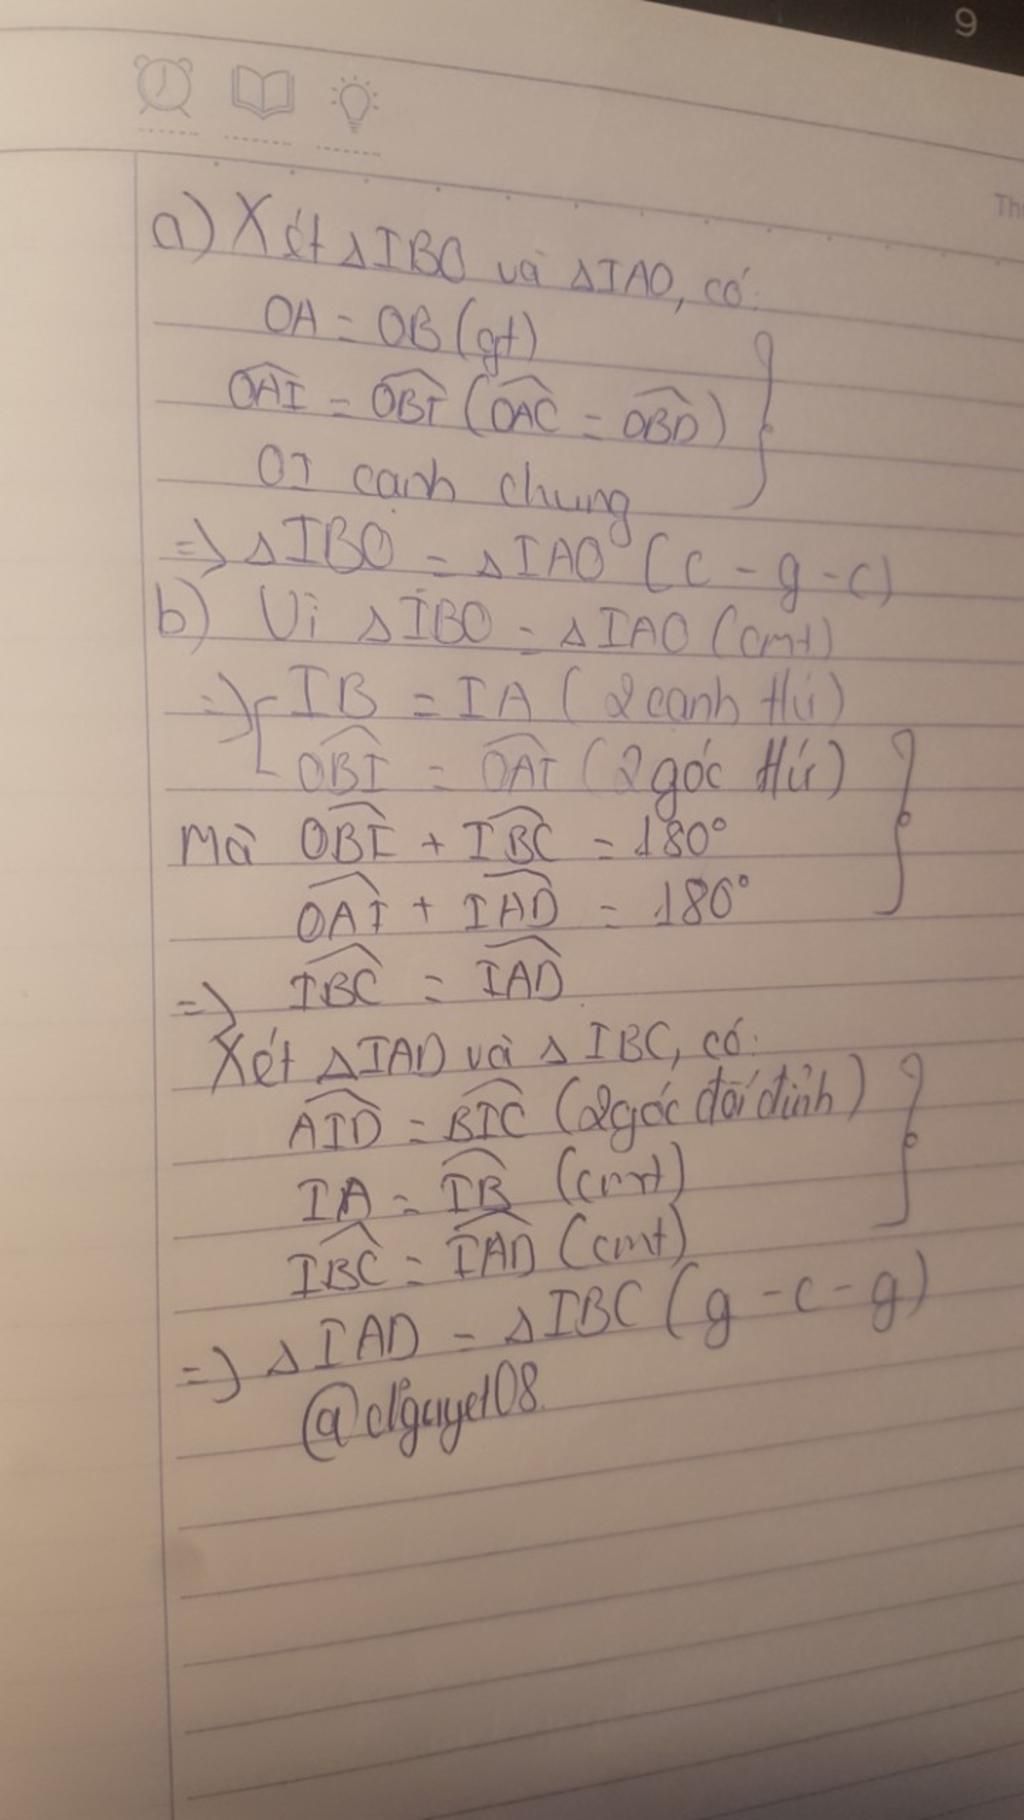 9
Th
a) Xét ΔIBO và ΔIAO, có:
OA = OB (gt)
\widehat{OAI} = \widehat{OBI} (\widehat{OAC} = \widehat{OBD})
OI cạnh chung
=> ΔIBO = ΔIAO (c - g - c)
b) Vì ΔIBO = ΔIAO (cmt)
=> IB = IA (2 cạnh tứ)
\widehat{OBI} = \widehat{OAI} (2 góc tứ)
Mà \widehat{OBI} + \widehat{IBC} = 180°
\widehat{OAI} + \widehat{IAD} = 180°
=> \widehat{IBC} = \widehat{IAD}
Xét ΔIAD và ΔIBC, có:
\widehat{AID} = \widehat{BIC} (2 góc đối đỉnh)
IA = \widehat{IB} (cmt)
\widehat{IBC} = \widehat{IAD} (cmt)
=> ΔIAD = ΔIBC (g - c - g)